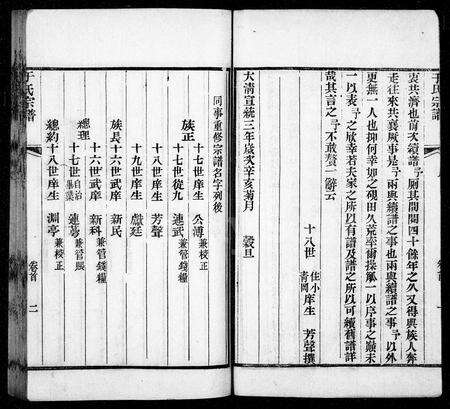 于氏宗譜
衷共濟也前次續譜予厠其間閱四十餘年之久又得與族人奔
走往來共襄厥事是予兩與續譜之事也兩與續譜之事予以外
更無一人也抑何幸如之硯田久荒率爾操觚一以序事之顚末
一以表予之欣幸若夫家之所以有譜及譜之所以可續舊譜詳
哉其言之予不敢贅一辭云
十八世 住小青岡 庠生 芳聲撰
大淸宣統三年歲次辛亥菊月 穀旦
卷首 一
同事重修宗譜名字列後
族正
十七世庠生 公溥 兼校正
十七世從九 連武 兼管錢糧
十八世庠生 芳聲
十九世庠生 慶廷
族長十六世武庠 新民
十六世武庠 新科 兼管錢糧
總理
十七世自治 連蕚 兼管賬
總約十八世庠生 淵亭 兼校正
于氏宗譜
卷首 二